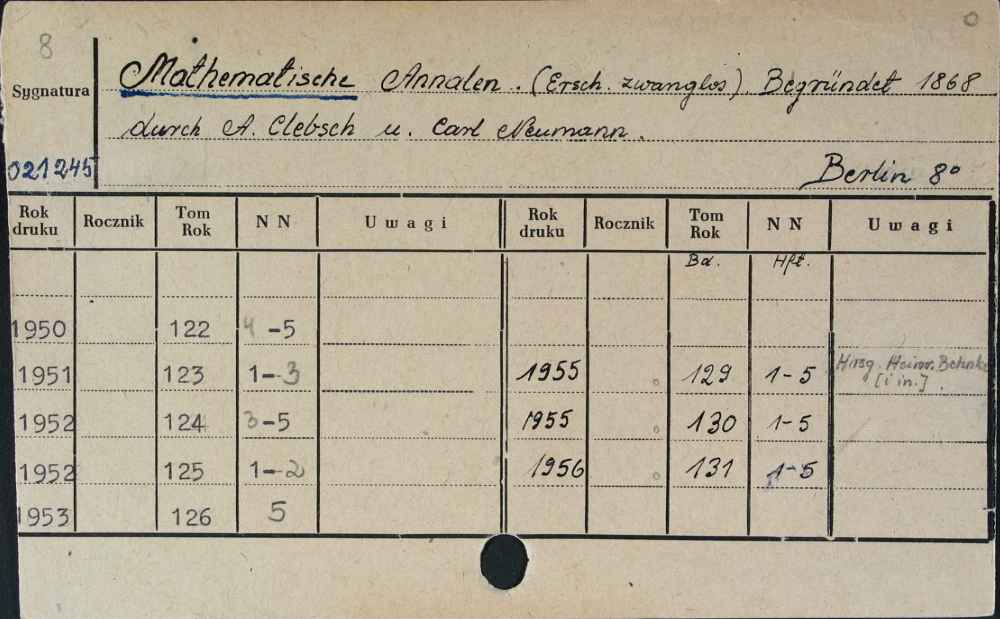 8
Sygnatura
021245
Mathematische Annalen. (Ersch. zwanglos). Begründet 1868
durch A. Clebsch u. Carl Neumann.
Berlin 8°
Rok druku Rocznik Tom Rok NN Uwagi Rok druku Rocznik Tom Rok NN Uwagi
Bd. Hft.
1950 122 4-5
1951 123 1-3 1955 129 1-5 Hrsg. Heinr. Behnke [i in.]
1952 124 3-5 1955 130 1-5
1952 125 1-2 1956 131 1-5
1953 126 5